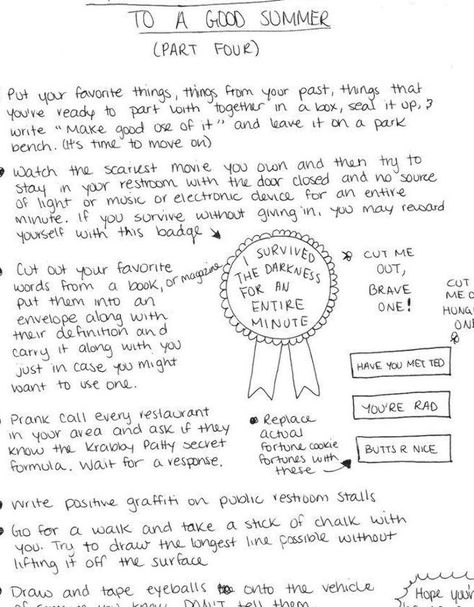 TO A GOOD SUMMER
(PART FOUR)
Put your favorite things, things from your past, things that
you're ready to part with together in a box, seal it up, &
write "Make good use of it" and leave it on a park
bench. (It's time to move on)
Watch the scariest movie you own and then try to
stay in your restroom with the door closed and no source
of light or music or electronic device for an entire
minute. If you survive without giving in, you may reward
yourself with this badge
Cut out your favorite
words from a book, or magazine
put them into an
envelope along with
their definition and
carry it along with you
just in case you might
want to use one.
I SURVIVED
THE DARKNESS
FOR AN
ENTIRE
MINUTE
CUT ME
OUT,
BRAVE
ONE!
CUT
ME O
HUNG
ON
HAVE YOU MET TED
YOU'RE RAD
BUTTS R NICE
Prank call every restaurant
in your area and ask if they
know the Krabby Patty secret
formula. Wait for a response.
Replace
actual
fortune cookie
fortunes with
these
Write positive graffiti on public restroom stalls
Go for a walk and take a stick of chalk with
you. Try to draw the longest line possible without
lifting it off the surface
Draw and tape eyeballs onto the vehicle
DON'T tell them
Hope you'r